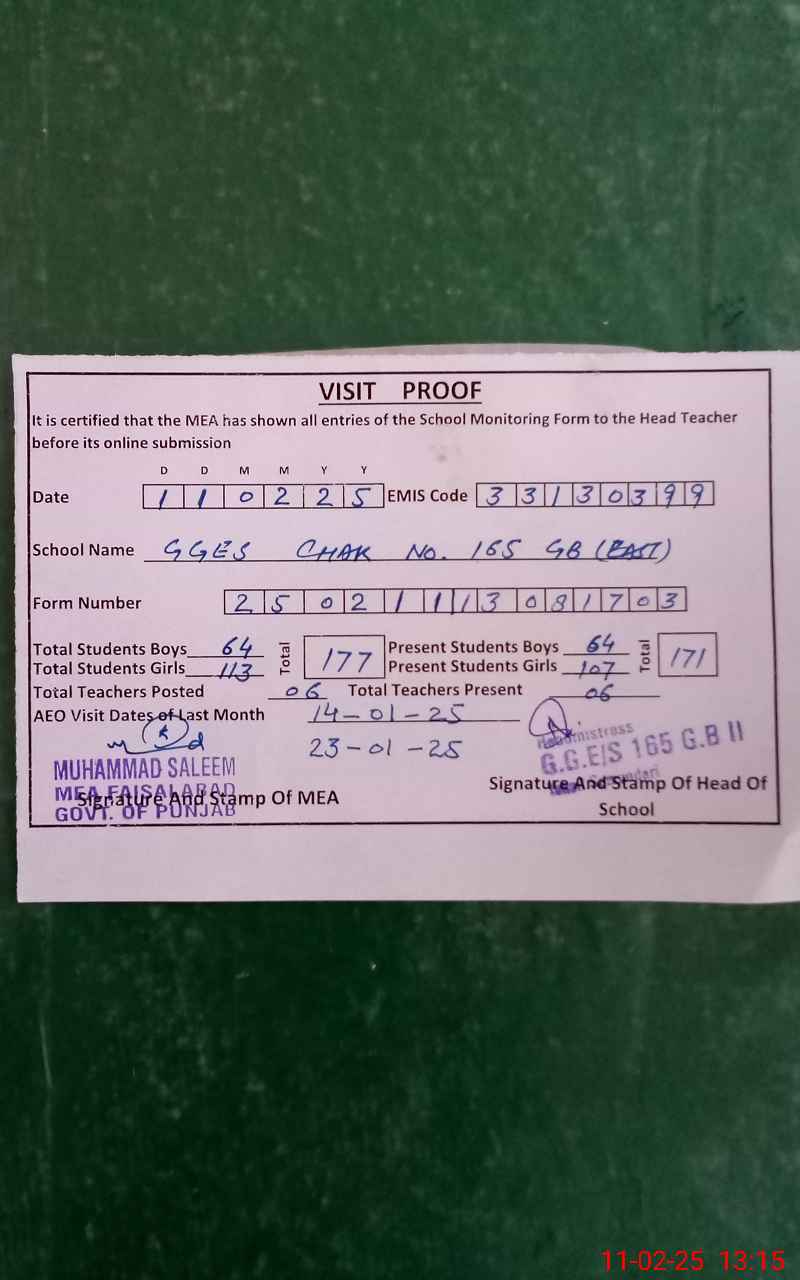 VISIT PROOF
It is certified that the MEA has shown all entries of the School Monitoring Form to the Head Teacher
before its online submission
D D M M Y Y
Date 1 1 0 2 2 5 EMIS Code 3 3 1 3 0 3 9 9
School Name GGES CHAK NO. 165 GB (EAST)
Form Number 2 5 0 2 1 1 1 3 0 8 1 7 0 3
Total Students Boys 64 Total 177 Present Students Boys 64 Total 171
Total Students Girls 113 Present Students Girls 107
Total Teachers Posted 06 Total Teachers Present 06
AEO Visit Dates of Last Month 14-01-25
23-01-25
MUHAMMAD SALEEM
MEA FAISALABAD
GOVT. OF PUNJAB
Signature And Stamp Of MEA
Headmistress
G.G.E|S 165 G.B II
Signature And Stamp Of Head Of
School
11-02-25 13:15